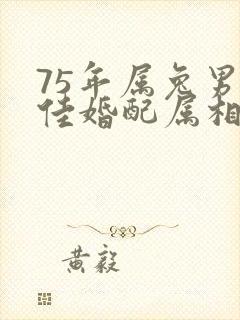 75年属兔男
佳婚配属相
黄毅